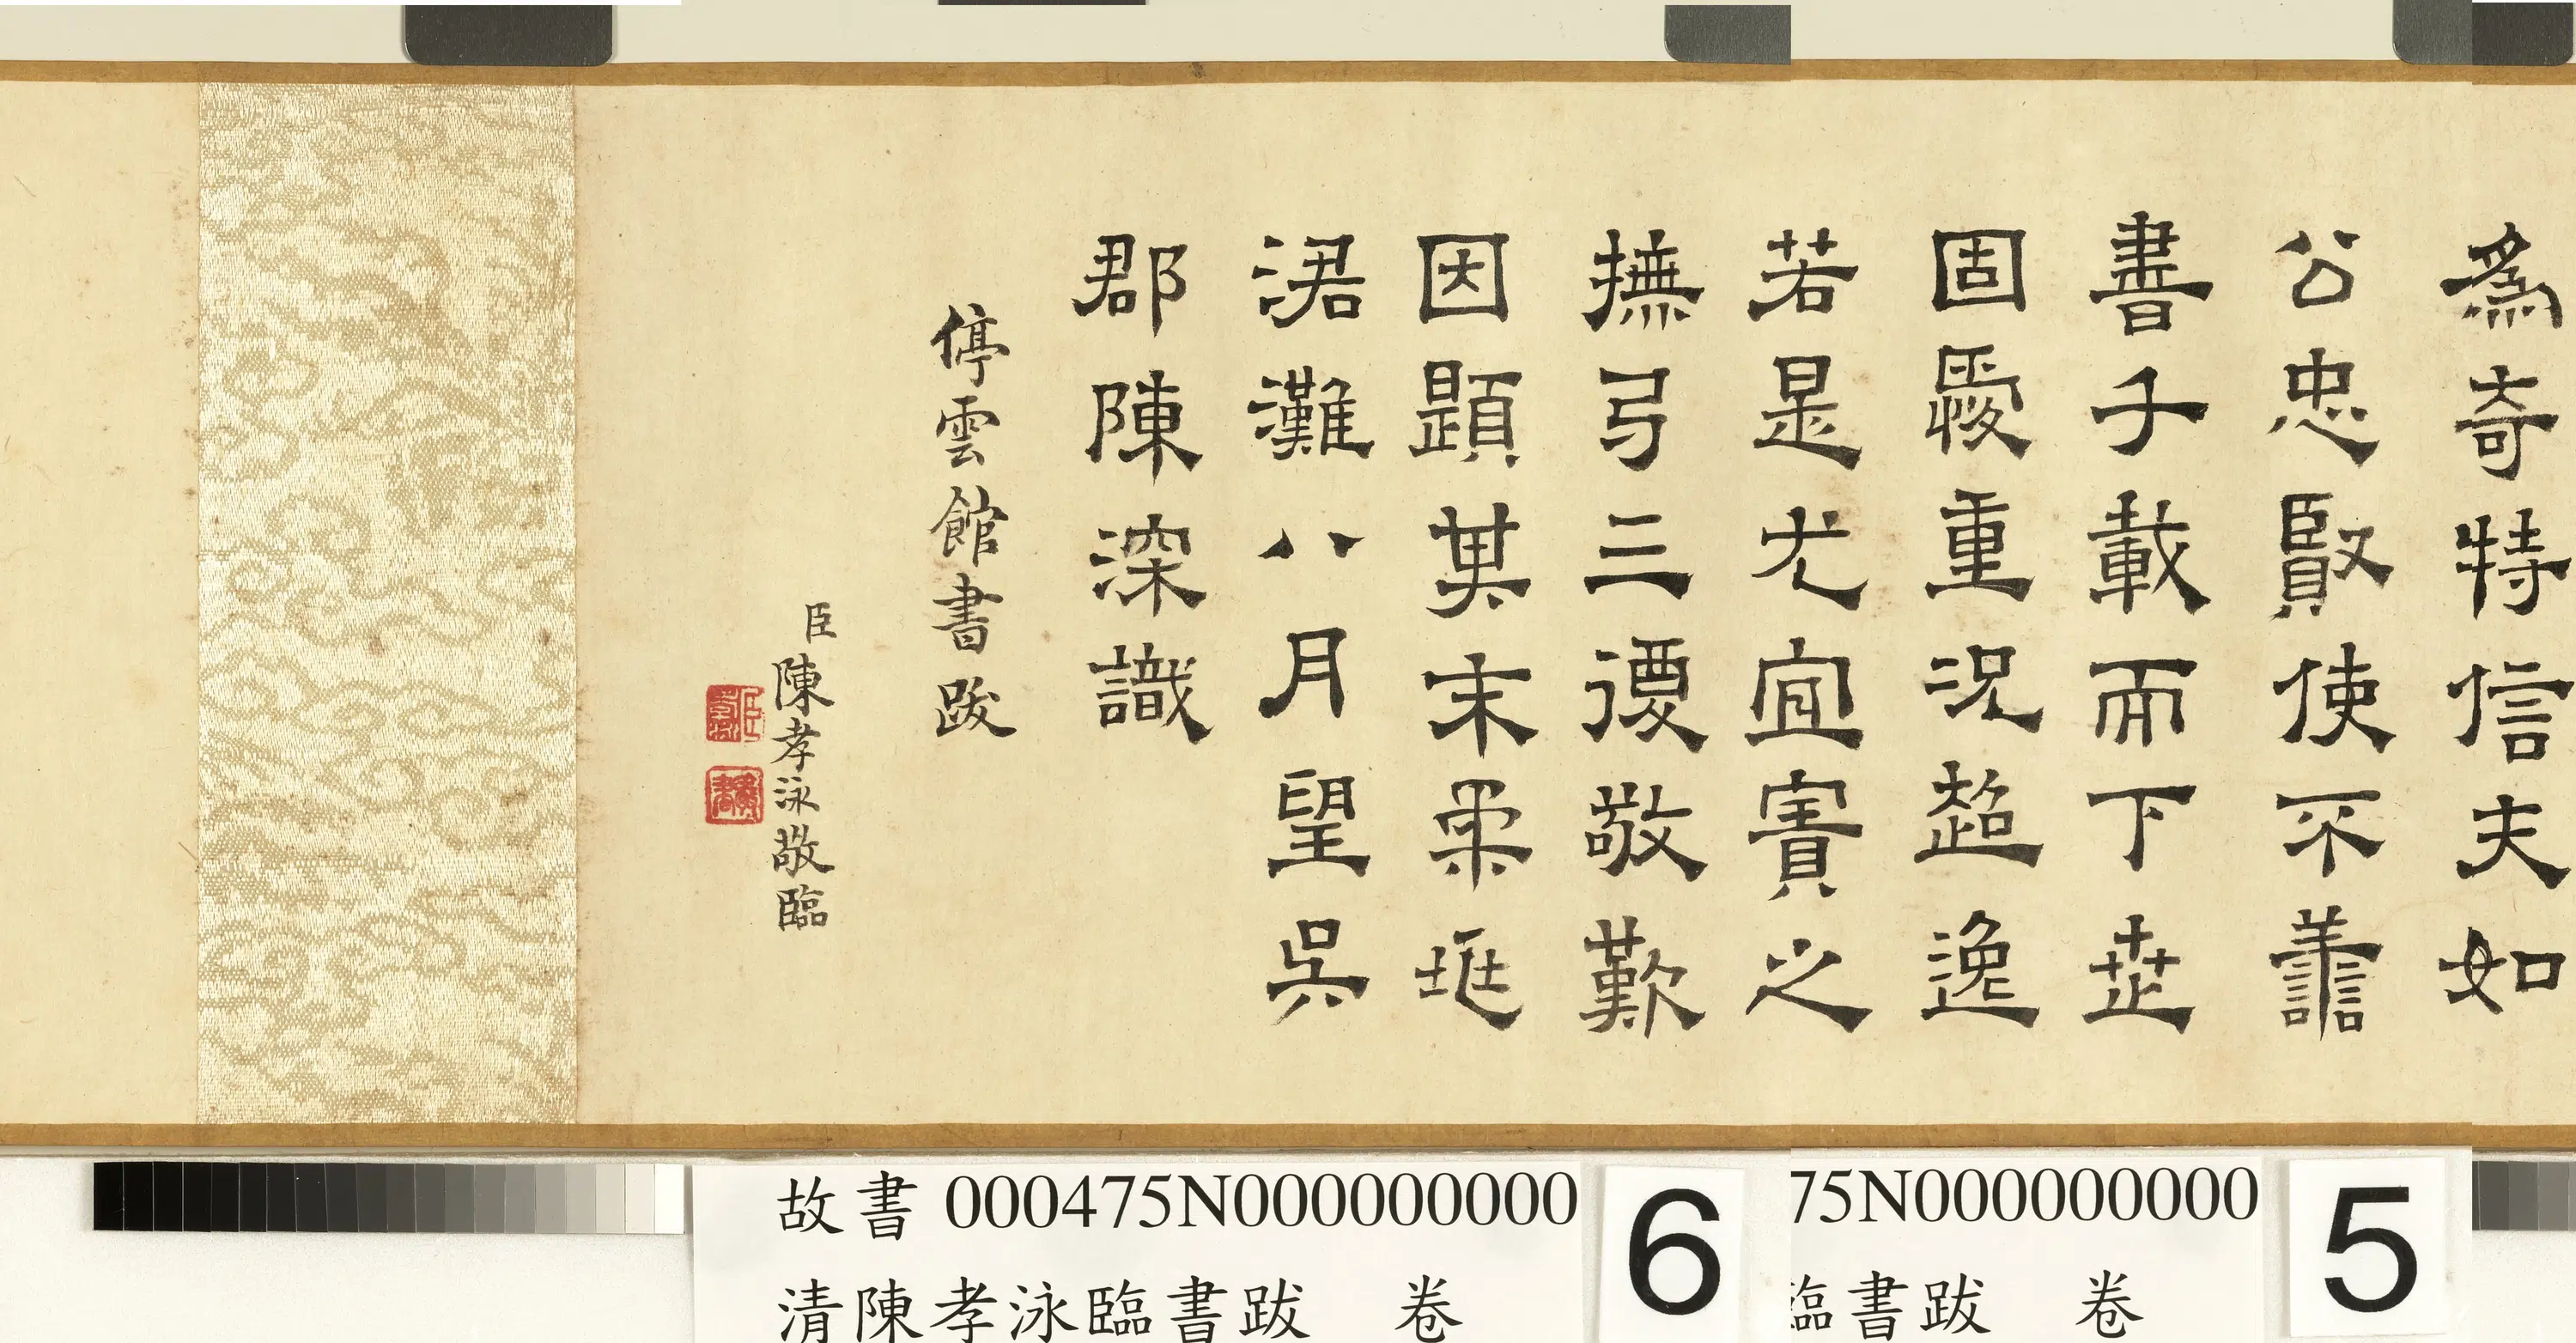 為奇特信夫如
公忠賢使不譱
書千載而下
固愛重況超逸
若是尤宜寶之
撫弓三復敬歎
因題其末柔
涒灘八月望吳
郡陳深識
停雲館書跋
臣陳孝泳敬臨
故書 000475N000000000
清陳孝泳臨書跋 卷
6
75N000000000
臨書跋 卷
5